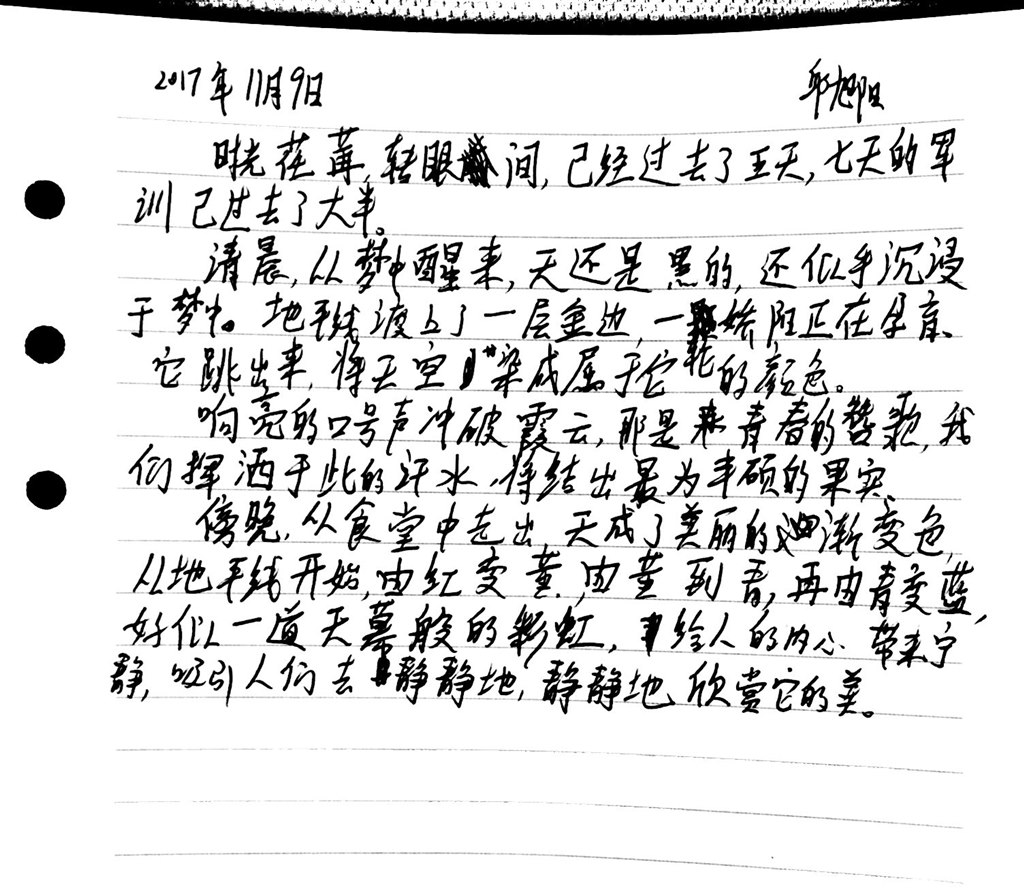 2017年11月9日 邱旭阳
时光荏苒,转眼间,已经过去了五天,七天的军
训已过去了大半。
清晨,从梦中醒来,天还是黑的,还似乎沉浸
于梦中。地平线渡上了一层金边,一轮娇阳正在孕育、
它跳出来,将天空染成属于它的颜色。
响亮的口号声冲破霞云,那是青春的赞歌,我
们挥洒于此的汗水,将结出最为丰硕的果实、
傍晚,从食堂中走出,天成了美丽的渐变色,
从地平线开始,由红变黄,由黄到青,再由青变蓝,
好似一道天幕般的彩虹,给人的内心带来宁
静,吸引人们去静静地,静静地欣赏它的美。